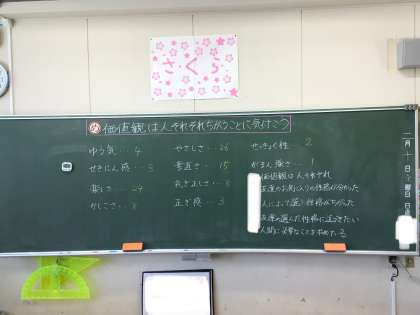 さくら
め 価値観は人それぞれちがうことに気付こう
ゆう気…4
せきにん感…3
楽しさ…29
かしこさ…8
やさしさ…26
素直さ…15
礼ぎ正しさ…8
正ぎ感…3
せっきょく性…2
がまん強さ…1
価値観は人それぞれ
友達のお気に入りの性格が分かった
人によって選ぶ性格がちがった
友達の選んだ性格に近づきたい
人間に必要なことを求めている